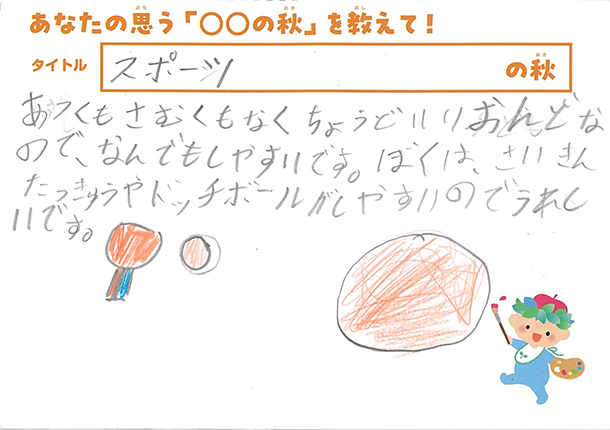 あなたの思う「〇〇の秋」を教えて！
タイトル スポーツ の秋
あつくもさむくもなくちょうどいいおんどな
ので、なんでもしやすいです。ぼくは、さいきん
たっきゅうやドッチボールがしやすいのでうれし
いです。